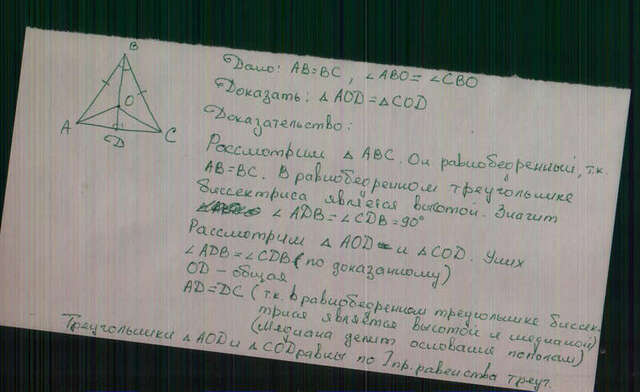 B
O
A
C
D
Дано: AB=BC, ∠ABO=∠CBO
Доказать: △AOD=△COD
Доказательство:
Рассмотрим △ABC. Он равнобедренный, т.к.
AB=BC. В равнобедренном треугольнике
биссектриса является высотой. Значит
∠ADB=∠CDB=90°
Рассмотрим △AOD и △COD. У них
∠ADB=∠CDB (по доказанному)
OD - общая
AD=DC (т.к. в равнобедренном треугольнике биссек-
триса является высотой и медианой)
(Медиана делит основание пополам)
Треугольники △AOD и △COD равны по I пр. равенства треуг.